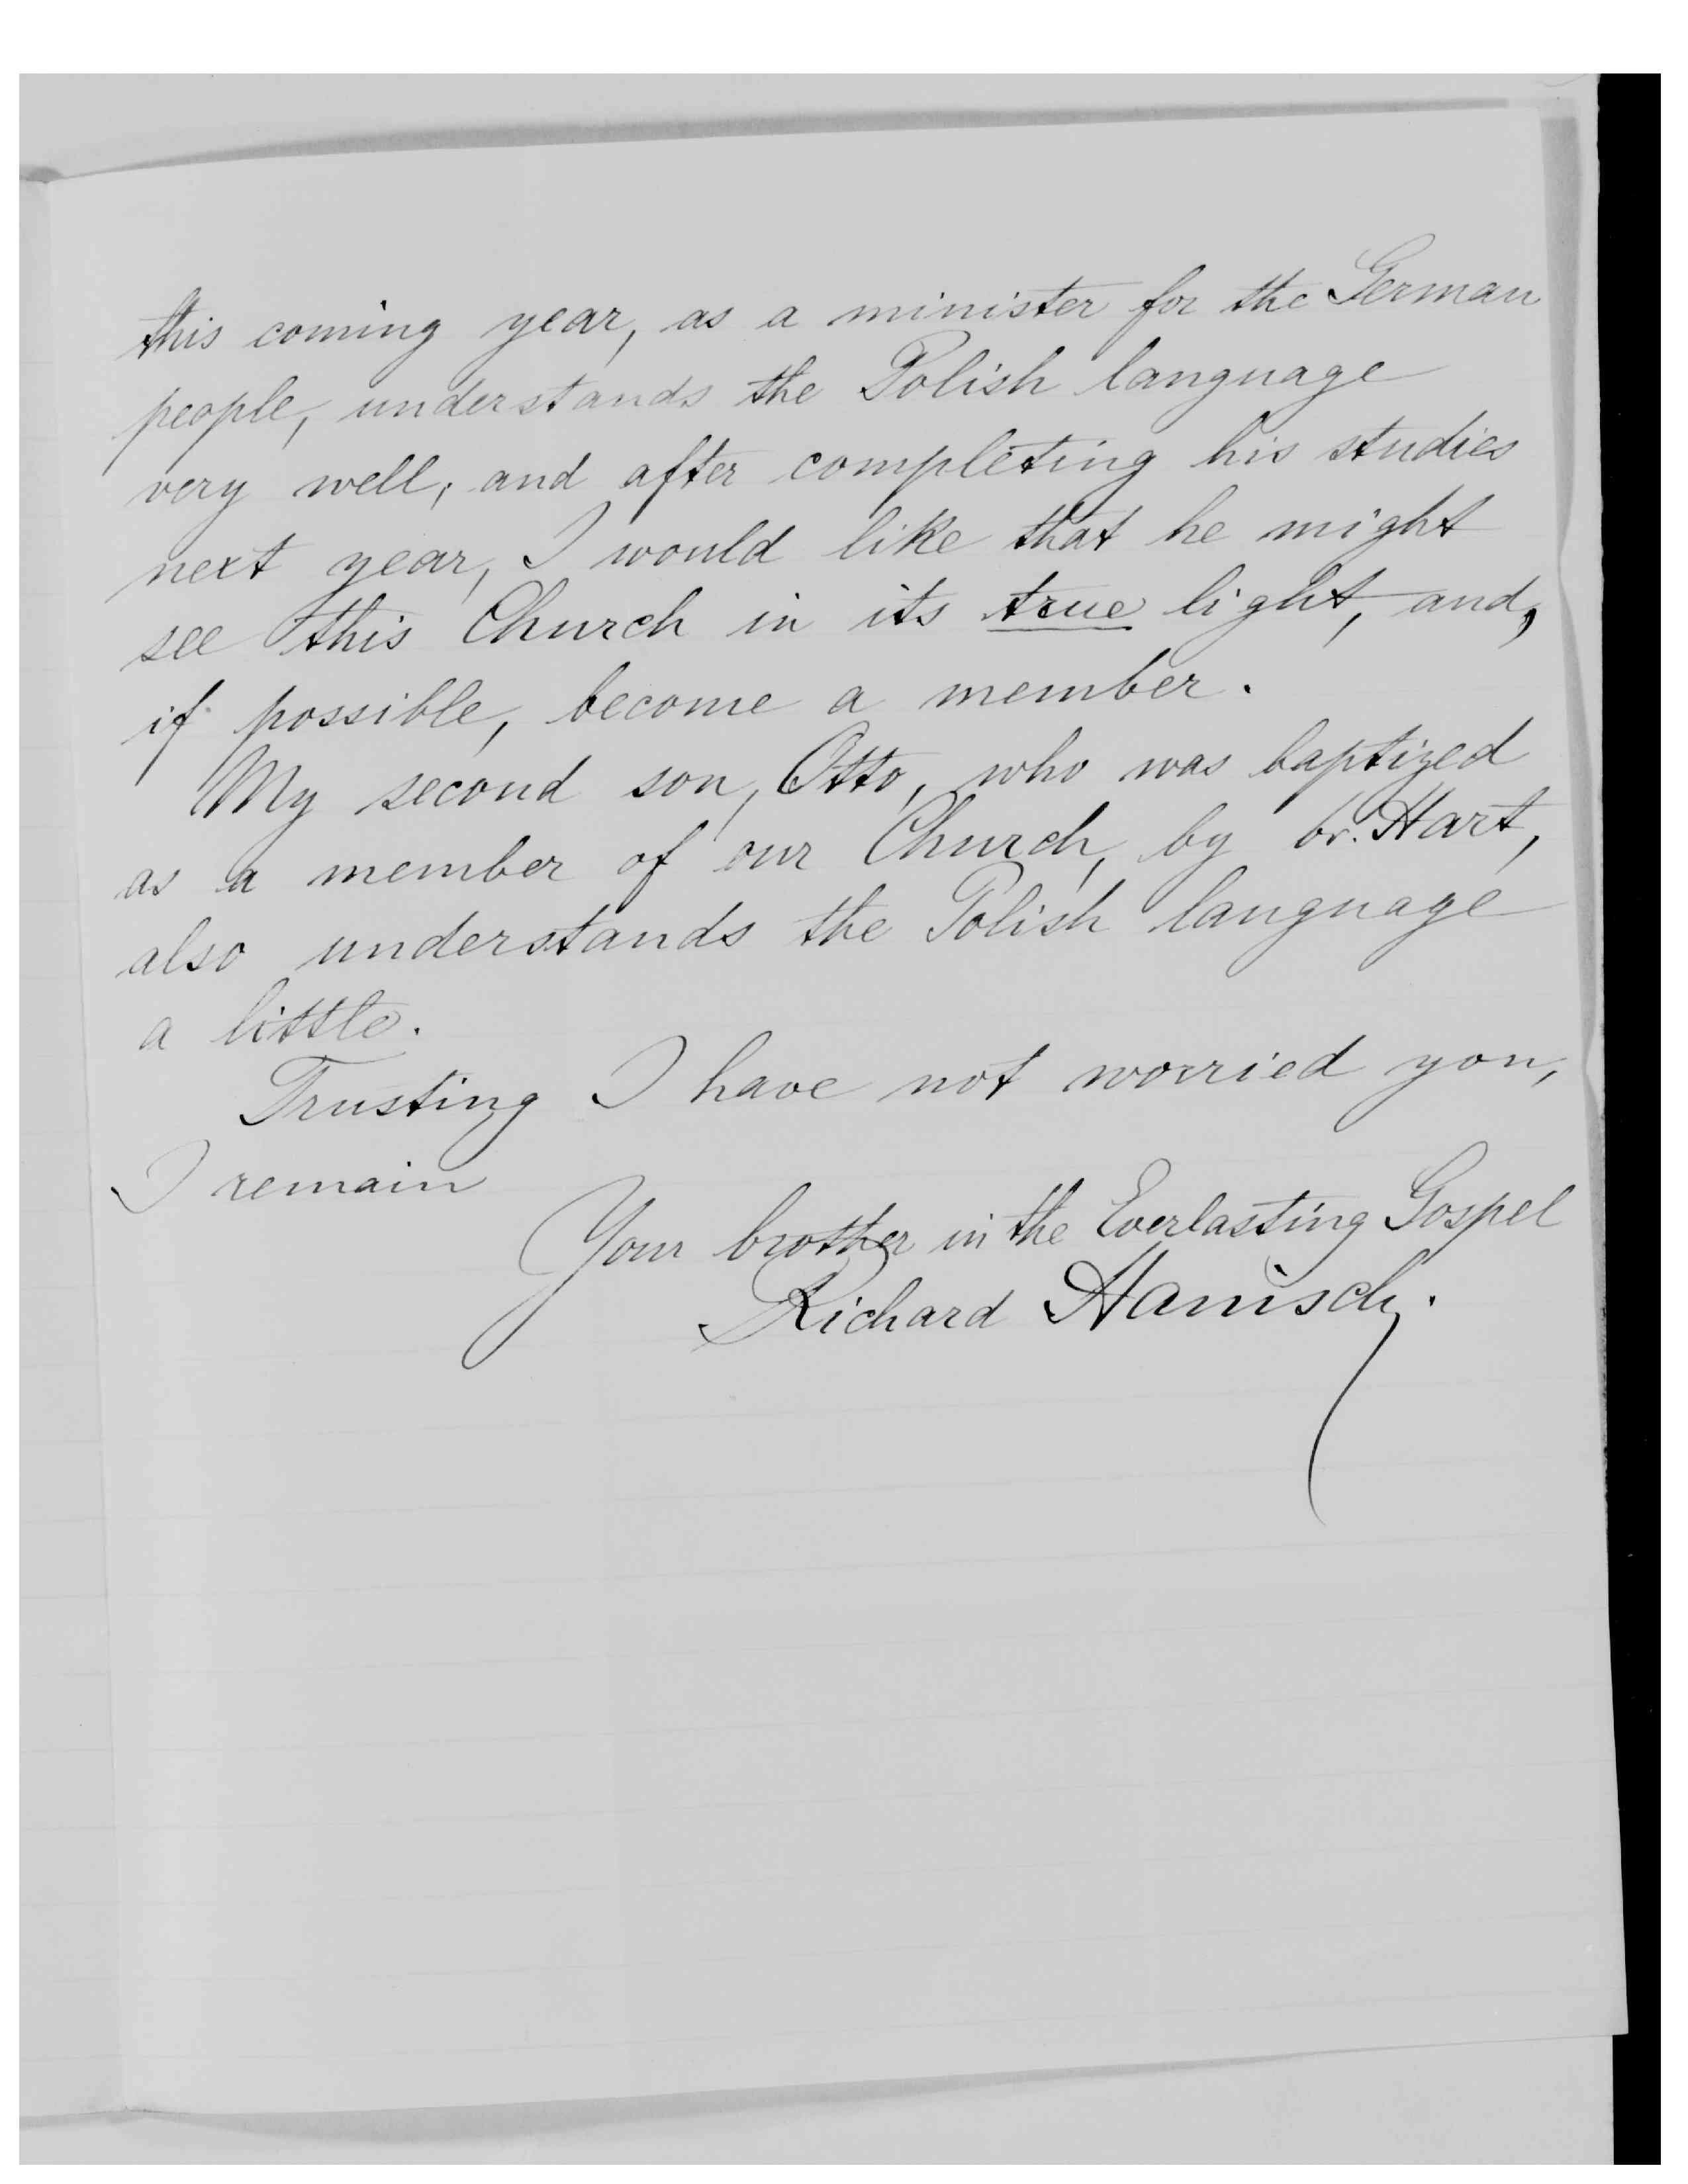 this coming year, as a minister for the German
people, understands the Polish language
very well, and after completing his studies
next year, I would like that he might
see this Church in its true light, and,
if possible, become a member.
My second son, Otto, who was baptized
as a member of our Church, by br. Hart,
also understands the Polish language
a little.
Trusting I have not worried you,
I remain
Your brother in the Everlasting Gospel
Richard Hanisch.